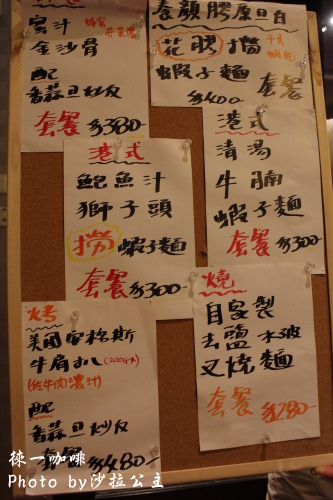 蜜汁
金沙骨
配
香蒜旦炒反
套餐 $380-
養顏膠原旦白
花膠撈
蝦子麵
套餐
$400-
港式
鮑魚汁
獅子頭
撈蝦子麵
套餐 $300-
港式
清湯
牛腩
蝦子麵
套餐 $300-
烤
美國安格斯
牛肩小八(200g以下)
濃汁
配
香蒜旦炒反
套餐 $480-
燒
自家製
去鹽 水波
叉燒麵
套餐 $280-
徠一咖啡
Photo by沙拉公主